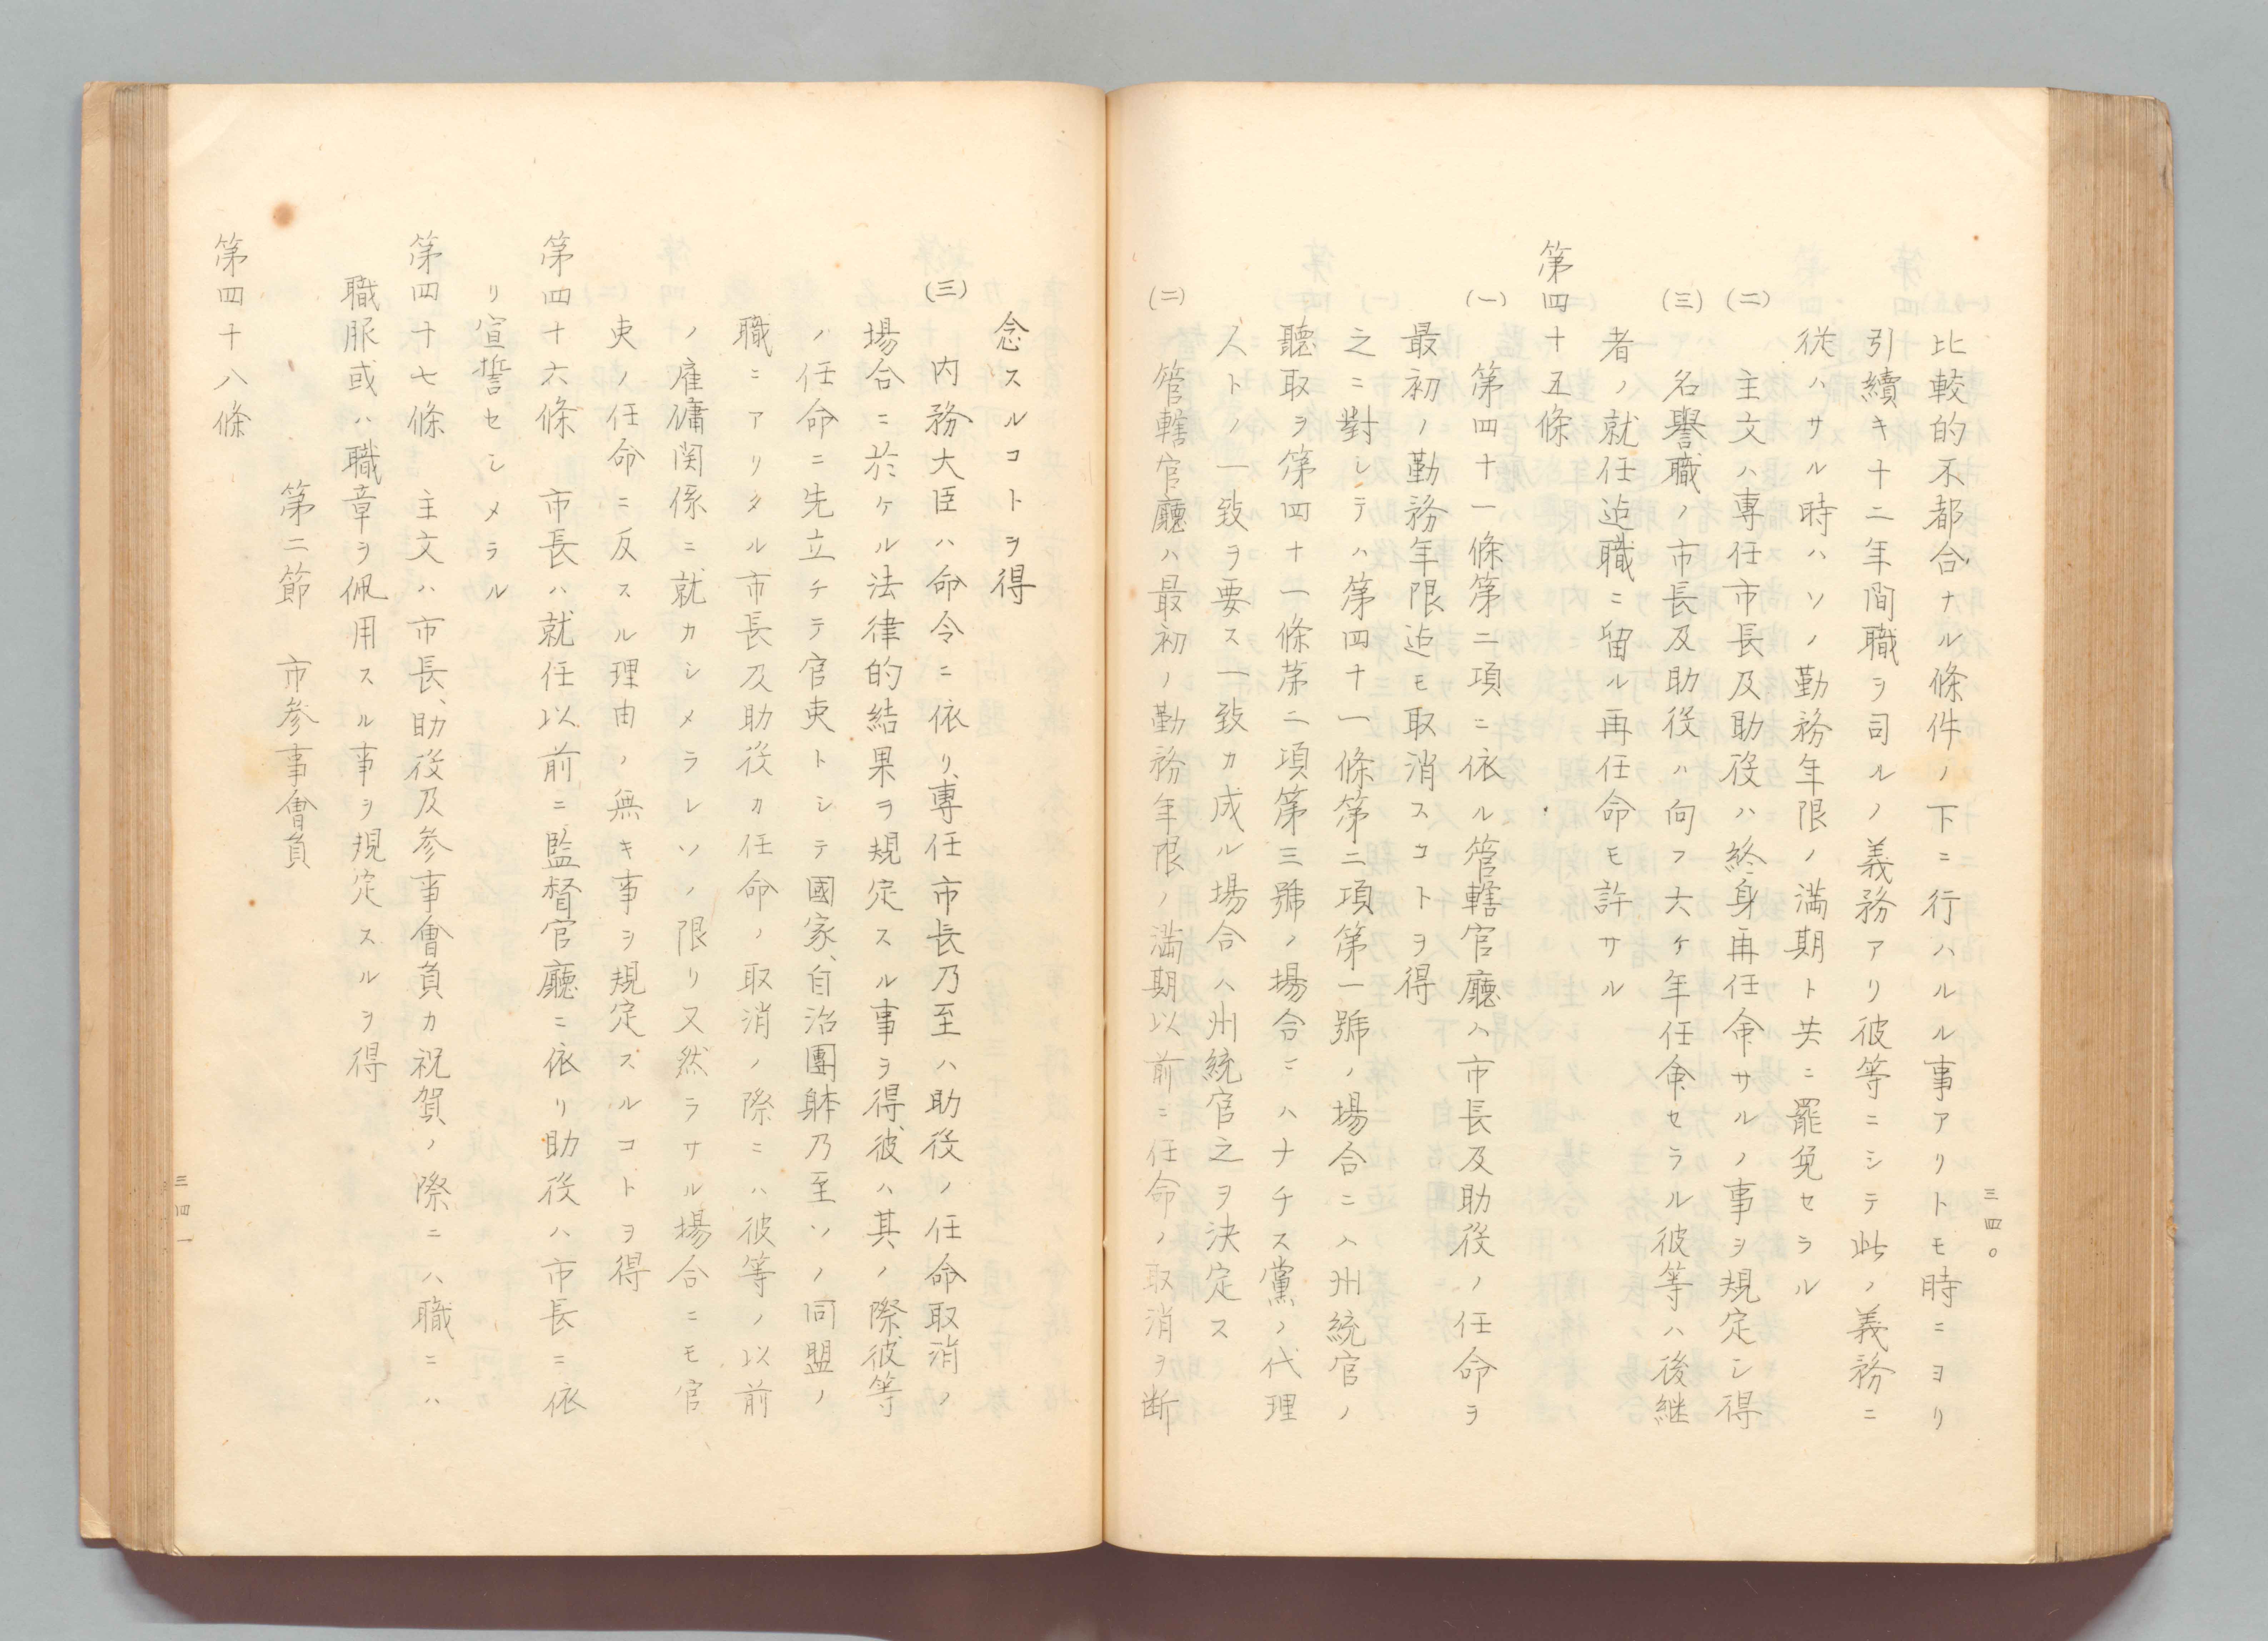 三四〇
比較的不都合ナル條件ノ下ニ行ハルル事アリトモ時ニヨリ
引續キ十二年間職ヲ司ルノ義務アリ彼等ニシテ此ノ義務ニ
從ハサル時ハソノ勤務年限ノ満期ト共ニ罷免セラル
(二) 主文ハ專任市長及助役ハ終身再任命サルノ事ヲ規定シ得
(三) 名譽職ノ市長及助役ハ向フ六ケ年任命セラル彼等ハ後継
者ノ就任迄職ニ留ル再任命モ許サル
第四十五條
(一) 第四十一條第二項ニ依ル管轄官廳ハ市長及助役ノ任命ヲ
最初ノ勤務年限迄モ取消スコトヲ得
之ニ對シテハ第四十一條第二項第一號ノ場合ニハ州統官ノ
聽取ヲ第四十一條第二項第三號ノ場合ニハナチス黨ノ代理
人トノ一致ヲ要ス一致カ成ル場合ハ州統官之ヲ決定ス
(二) 管轄官廳ハ最初ノ勤務年限ノ満期以前ニ任命ノ取消ヲ断
念スルコトヲ得
(三) 内務大臣ハ命令ニ依リ、專任市長乃至ハ助役ノ任命取消ノ
場合ニ於ケル法律的結果ヲ規定スル事ヲ得彼ハ其ノ際彼等
ノ任命ニ先立チテ官吏トシテ國家、自治團躰乃至ソノ同盟ノ
職ニアリタル市長及助役カ任命ノ取消ノ際ニハ彼等ノ以前
ノ雇傭関係ニ就カシメラレソノ限リ又然ラサル場合ニモ官
吏ノ任命ニ反スル理由ノ無キ事ヲ規定スルコトヲ得
第四十六條 市長ハ就任以前ニ監督官廳ニ依リ助役ハ市長ニ依
リ宣誓セシメラル
第四十七條 主文ハ市長、助役及参事會員カ祝賀ノ際ニハ職ニハ
職服或ハ職章ヲ佩用スル事ヲ規定スルヲ得
第二節 市参事會員
第四十八條
三四一